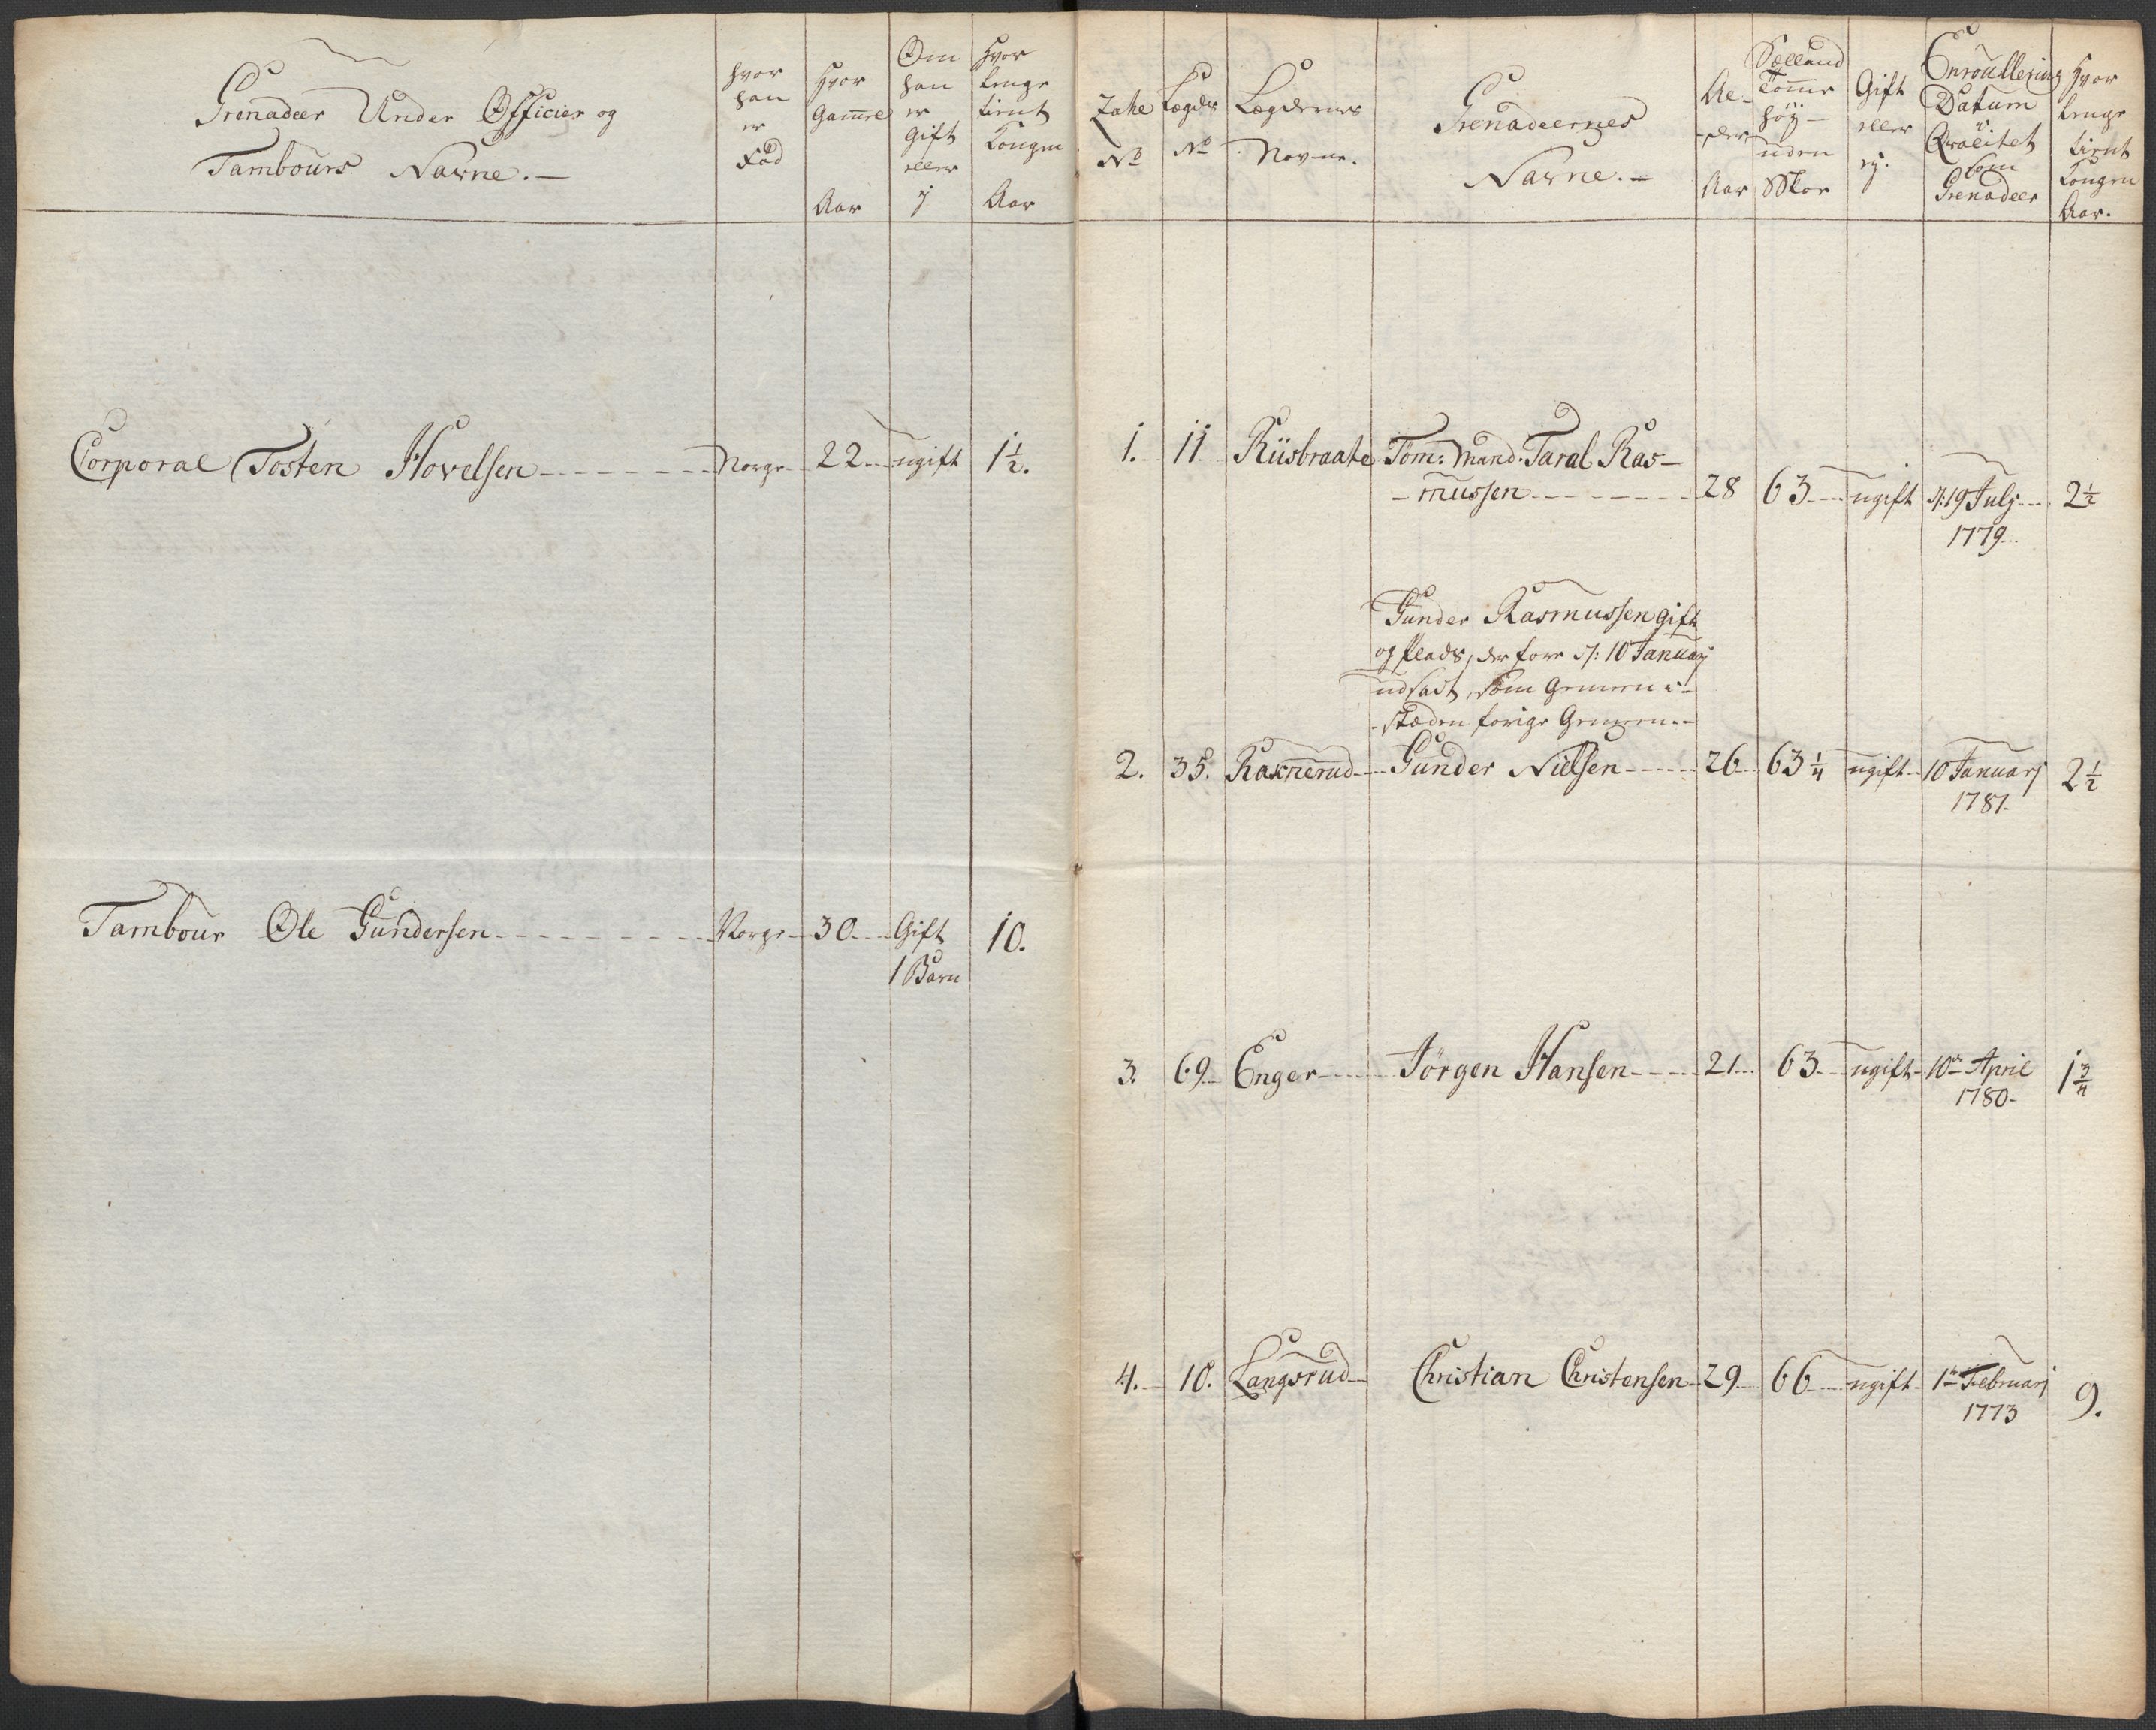 Grenadeer Under Officier og
Tambours Navne.—
hvor
han
er
Fød
Hvor
Gamme
Aar
Om
han
er
Gift
eller
Hvor
lenge
tient
Kongen
Aar
Corporal Tosten Hovelsen Norge 22 ugift 1½.
Tambour Ole Gundersen Norge 30 Gift 10.
1 Barn
No
Lægds
No
Lægdernes
Navne.
Grenadeernes
Navne.—
Al-
-der
Aar
Sælland
Tomme
høy
uden
Skoe
Gift
eller
ej.
Enroullering
Datum
Qvalitet
som
Grenadeer
Hvor
lenge
tient
Kongen
Aar.
1. 11 Riisbraate Töm: Mand. Taral Ras-
-mussen 28 63 ugift d: 19 July 2½
1779
Gunder Rasmussen gift
og Plads, der fore d: 10 Januarj
udsadt, som Gemeen i
stæden forige Gemeen
2. 35. Raknerud Gunder Nielsen 26 63¼ ugift 10 Januarj 2½
1781.
3. 69 Enger Jörgen Hansen 21 63 ugift 10de April 1¾
1780
4. 10. Langsrud Christian Christensen 29 66 ugift 1te Februarj 9.
1773